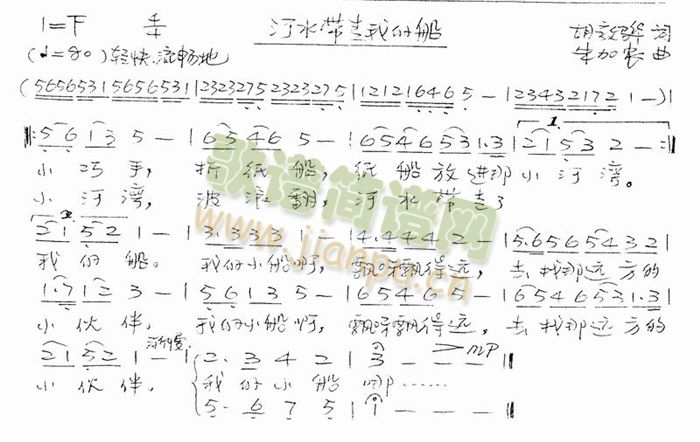 1=F 4/4 河水带走我的船 胡敦骅 词
(♩=80) 轻快.流畅地 朱加农 曲
(5656531 5656531 | 2323275 2323275 | 1212 16465 - | 23432172 1 -) |
‖: 5 6 1 3 5 - | 6 5 4 6 5 - | 6 5 4 6 5 3 1.3 | 2 1 5 3 2 - :‖
小 巧 手, 折 纸 船, 纸 船 放 进 那 小 河 湾。
小 河 湾, 波 浪 翻, 河 水 带 走了
2 1 5 2 1 - | 3. 3 3 3 1 - | 4. 4 4 4 2 - | 5. 6 5 6 5 4 3 2 |
我 的 船。 我的小船啊, 飘呀飘得远, 去找那远方的
1. 7 1 2 3 - | 5 6 1 3 5 - | 6 5 4 6 5 - | 6 5 4 6 5 3 1.3 |
小 伙 伴, 我的小船啊, 飘呀飘得远, 去找那远方的
2 1 5 2 1 - | 渐慢 2. 3 4 2 | 3 - - > mp ‖
小 伙 伴, 我 的 小 船 啊……
5. 6 7 5 | 1 - - - ‖
歌谱简谱网
www.jianpu.cn